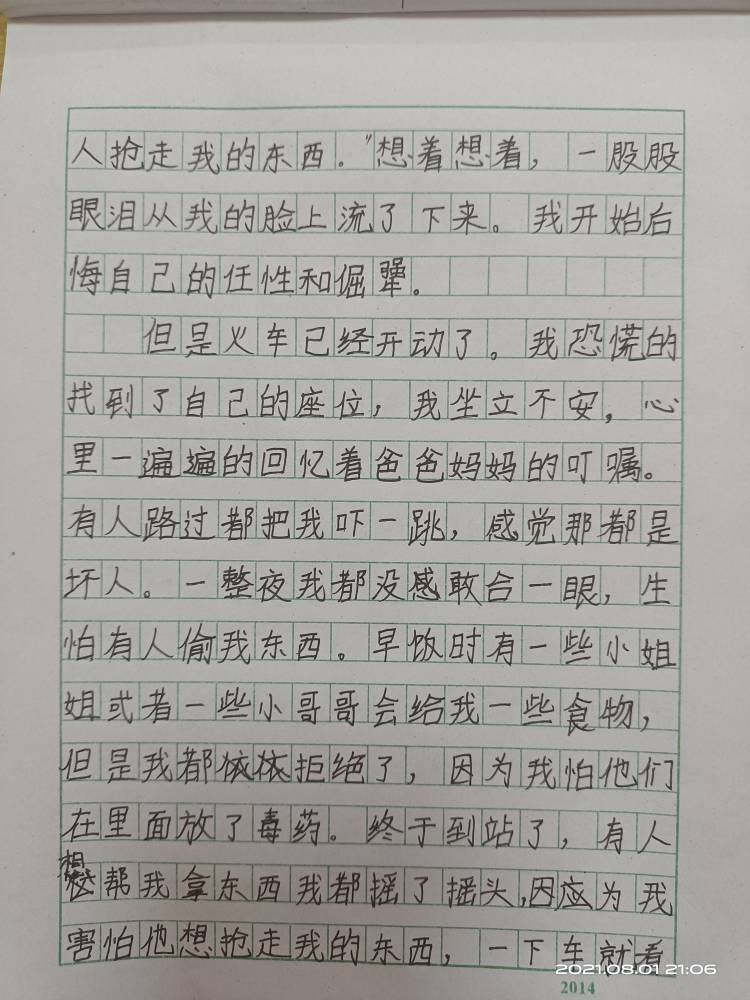 人抢走我的东西."想着想着，一股股
眼泪从我的脸上流了下来。我开始后
悔自己的任性和倔犟。
但是火车已经开动了。我恐慌的
找到了自己的座位，我坐立不安，心
里一遍遍的回忆着爸爸妈妈的叮嘱。
有人路过都把我吓一跳，感觉那都是
坏人。一整夜我都没感敢合一眼，生
怕有人偷我东西。早饭时有一些小姐
姐或者一些小哥哥会给我一些食物，
但是我都依依拒绝了，因为我怕他们
在里面放了毒药。终于到站了，有人
想帮我拿东西我都摇了摇头,因应为我
害怕他想抢走我的东西，一下车就看
2021.08.01 21:06
2014